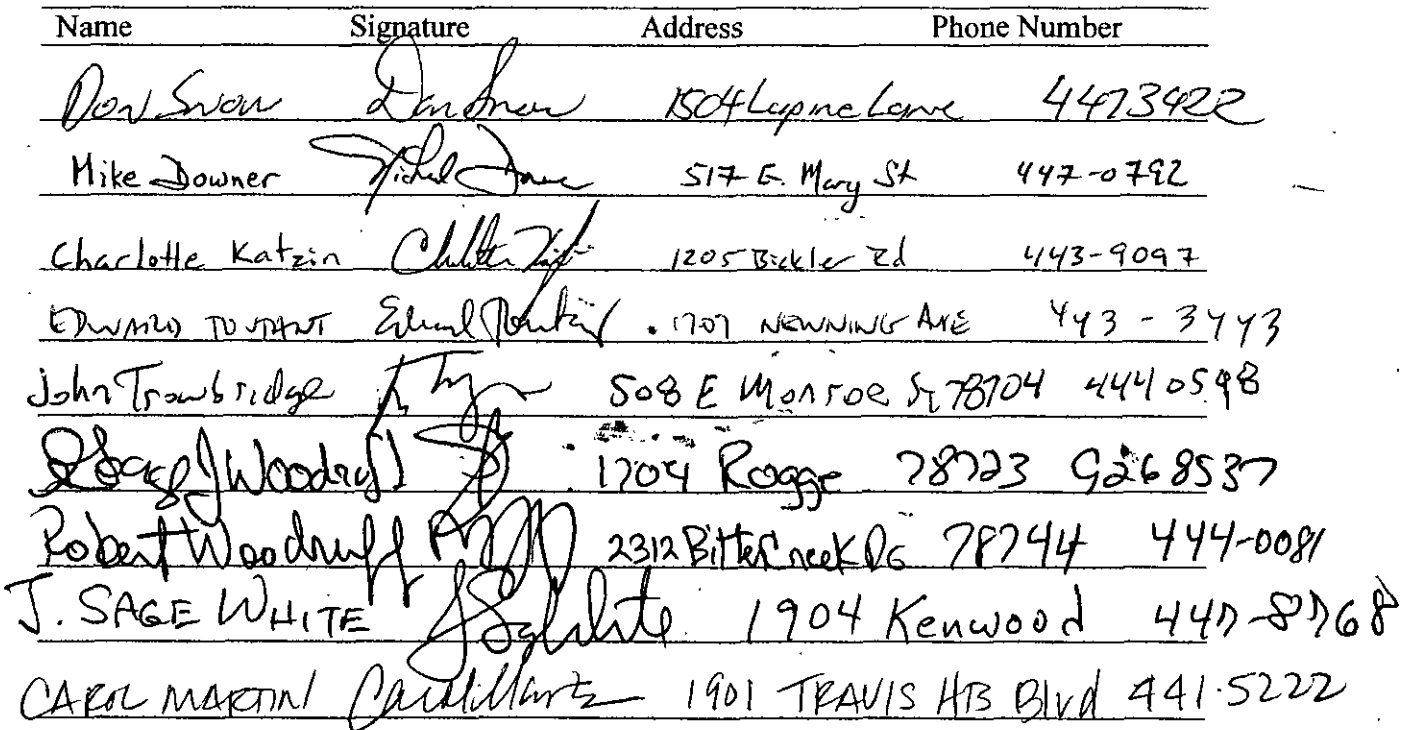 Name Signature Address Phone Number
Don Snow Don Snow 1504 Lupine Lane 4473422
Mike Downer 517 E. Mary St 447-0792
Charlotte Katzin 1205 Bickler Rd 443-9097
EDWARD TOUTANT 1707 NEWNING AVE 443-3443
John Trowbridge 508 E Monroe St 78704 444 0598
J Woodruff 1704 Rogge 78723 9268537
Robert Woodruff 2312 Bitter Creek Dr 78744 444-0081
J. SAGE WHITE J Sage White 1904 Kenwood 447-8768
CAROL MARTIN Carol Martin 1901 TRAVIS HTS Blvd 441-5222